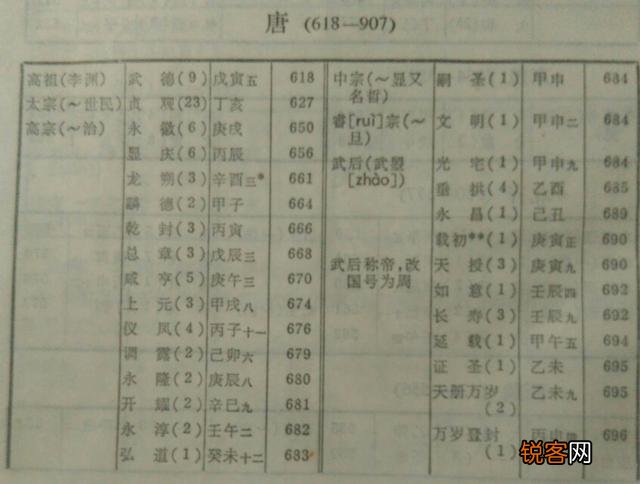 唐 (618—907)
高祖(李渊) 武 德(9) 戊寅五 618
太宗(～世民) 贞 观(23) 丁亥 627
高宗(～治) 永 徽(6) 庚戌 650
显 庆(6) 丙辰 656
龙 朔(3) 辛酉三* 661
麟 德(2) 甲子 664
乾 封(3) 丙寅 666
总 章(3) 戊辰三 668
咸 亨(5) 庚午三 670
上 元(3) 甲戌八 674
仪 凤(4) 丙子十一 676
调 露(2) 己卯六 679
永 隆(2) 庚辰八 680
开 耀(2) 辛巳九 681
永 淳(2) 壬午二 682
弘 道(1) 癸未十二 683
中宗(～显又 嗣 圣(1) 甲申 684
名哲)
睿[ruì]宗(～ 文 明(1) 甲申二 684
旦)
武后(武曌 光 宅(1) 甲申九 684
[zhào]) 垂 拱(4) 乙酉 685
永 昌(1) 己丑 689
载初**(1) 庚寅正 690
武后称帝,改 天 授(3) 庚寅九 690
国号为周 如 意(1) 壬辰四 692
长 寿(3) 壬辰九 692
延 载(1) 甲午五 694
证 圣(1) 乙未 695
天册万岁 乙未九 695
(2)
万岁登封 丙申 696
(1)
锐客网